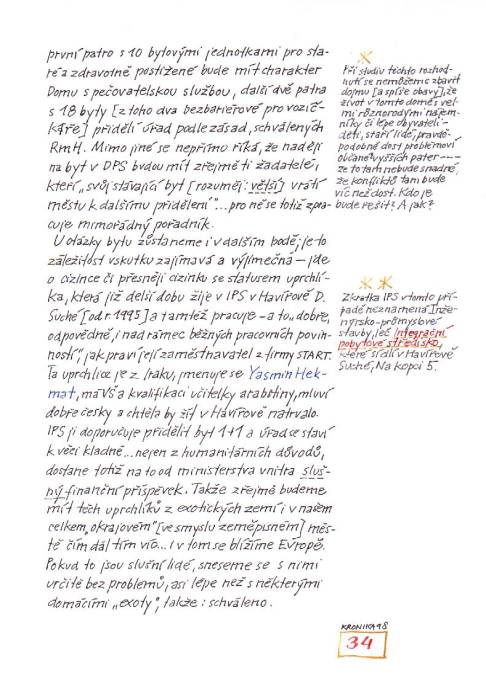 první patro s 10 bytovými jednotkami pro sta-
ré a zdravotně postižené bude mít charakter
Domu s pečovatelskou službou, další dvě patra
s 18 byty [z toho dva bezbariérové pro vozíč-
káře] přidělí úřad podle zásad, schválených
RmH. Mimo jiné se nepřímo říká, že naději
na byt v DPS budou mít zřejmě ti žadatelé,
kteří „svůj stávající byt [rozuměj: větší] vrátí
městu k dalšímu přidělení"... pro ně se totiž zpra-
cuje mimořádný pořadník.
U otázky bytu zůstaneme i v dalším bodě, je to
záležitost vskutku zajímavá a výjimečná – jde
o cizince či přesněji cizinku se statusem uprchlí-
ka, která již delší dobu žije v IPS v Havířově D.
Suché [od r. 1995] a tamtéž pracuje – a to „dobře,
odpovědně, i nad rámec běžných pracovních povin-
ností", jak praví její zaměstnavatel z firmy START.
Ta uprchlice je z Iráku, jmenuje se Yasmin Hek-
mat, má VŠ a kvalifikaci učitelky arabštiny, mluví
dobře česky a chtěla by žít v Havířově natrvalo.
IPS jí doporučuje přidělit byt 1+1 a úřad se staví
k věci kladně... nejen z humanitárních důvodů,
dostane totiž na to od ministerstva vnitra sluš-
ný finanční příspěvek. Takže zřejmě budeme
mít těch uprchlíků z exotických zemí i v našem
celkem „okrajovém" [ve smyslu zeměpisném] měs-
tě čím dál tím víc... i v tom se blížíme Evropě.
Pokud to jsou slušní lidé, sneseme se s nimi
určitě bez problémů, asi lépe než s některými
domácími „exoty", takže: schváleno.
Při studiu těchto rozhod-
nutí se nemůžeme zbavit
dojmu [a spíše obavy], že
život v tomto domě s vel-
mi různorodými nájem-
níky či lépe obyvateli -
děti, staří lidé, pravdě-
podobně dost problémoví
občané vyšších pater ----
že to tam nebude snadné,
že konfliktů tam bude
víc než dost. Kdo je
bude řešit? A jak?
Zkratka IPS v tomto pří-
padě neznamená Inže-
nýrsko-průmyslové
stavby, leč Integrační
pobytové středisko,
které sídlí v Havířově
Suché, Na kopci 5.
KRONIKA 98
34